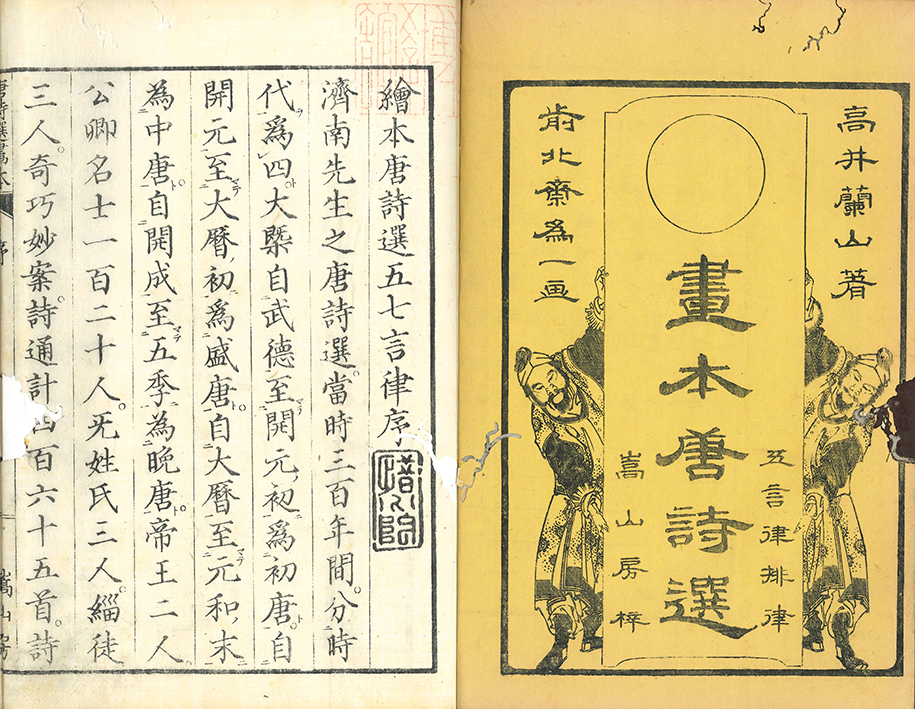 高井蘭山著
畫本唐詩選
五言律排律
嵩山房梓
前北齋為一画
繪本唐詩選五七言律序
濟南先生之唐詩選。當時三百年間。分時
代為四大槩自武德至開元初為初唐。自
開元至大曆初為盛唐。自大曆至元和末
為中唐。自開成至五季為晩唐。帝王二人
公卿名士一百二十人。旡姓氏三人。緇徒
三人。奇巧妙案詩。通計四百六十五首。詩
唐詩選畫本
序
嵩山房